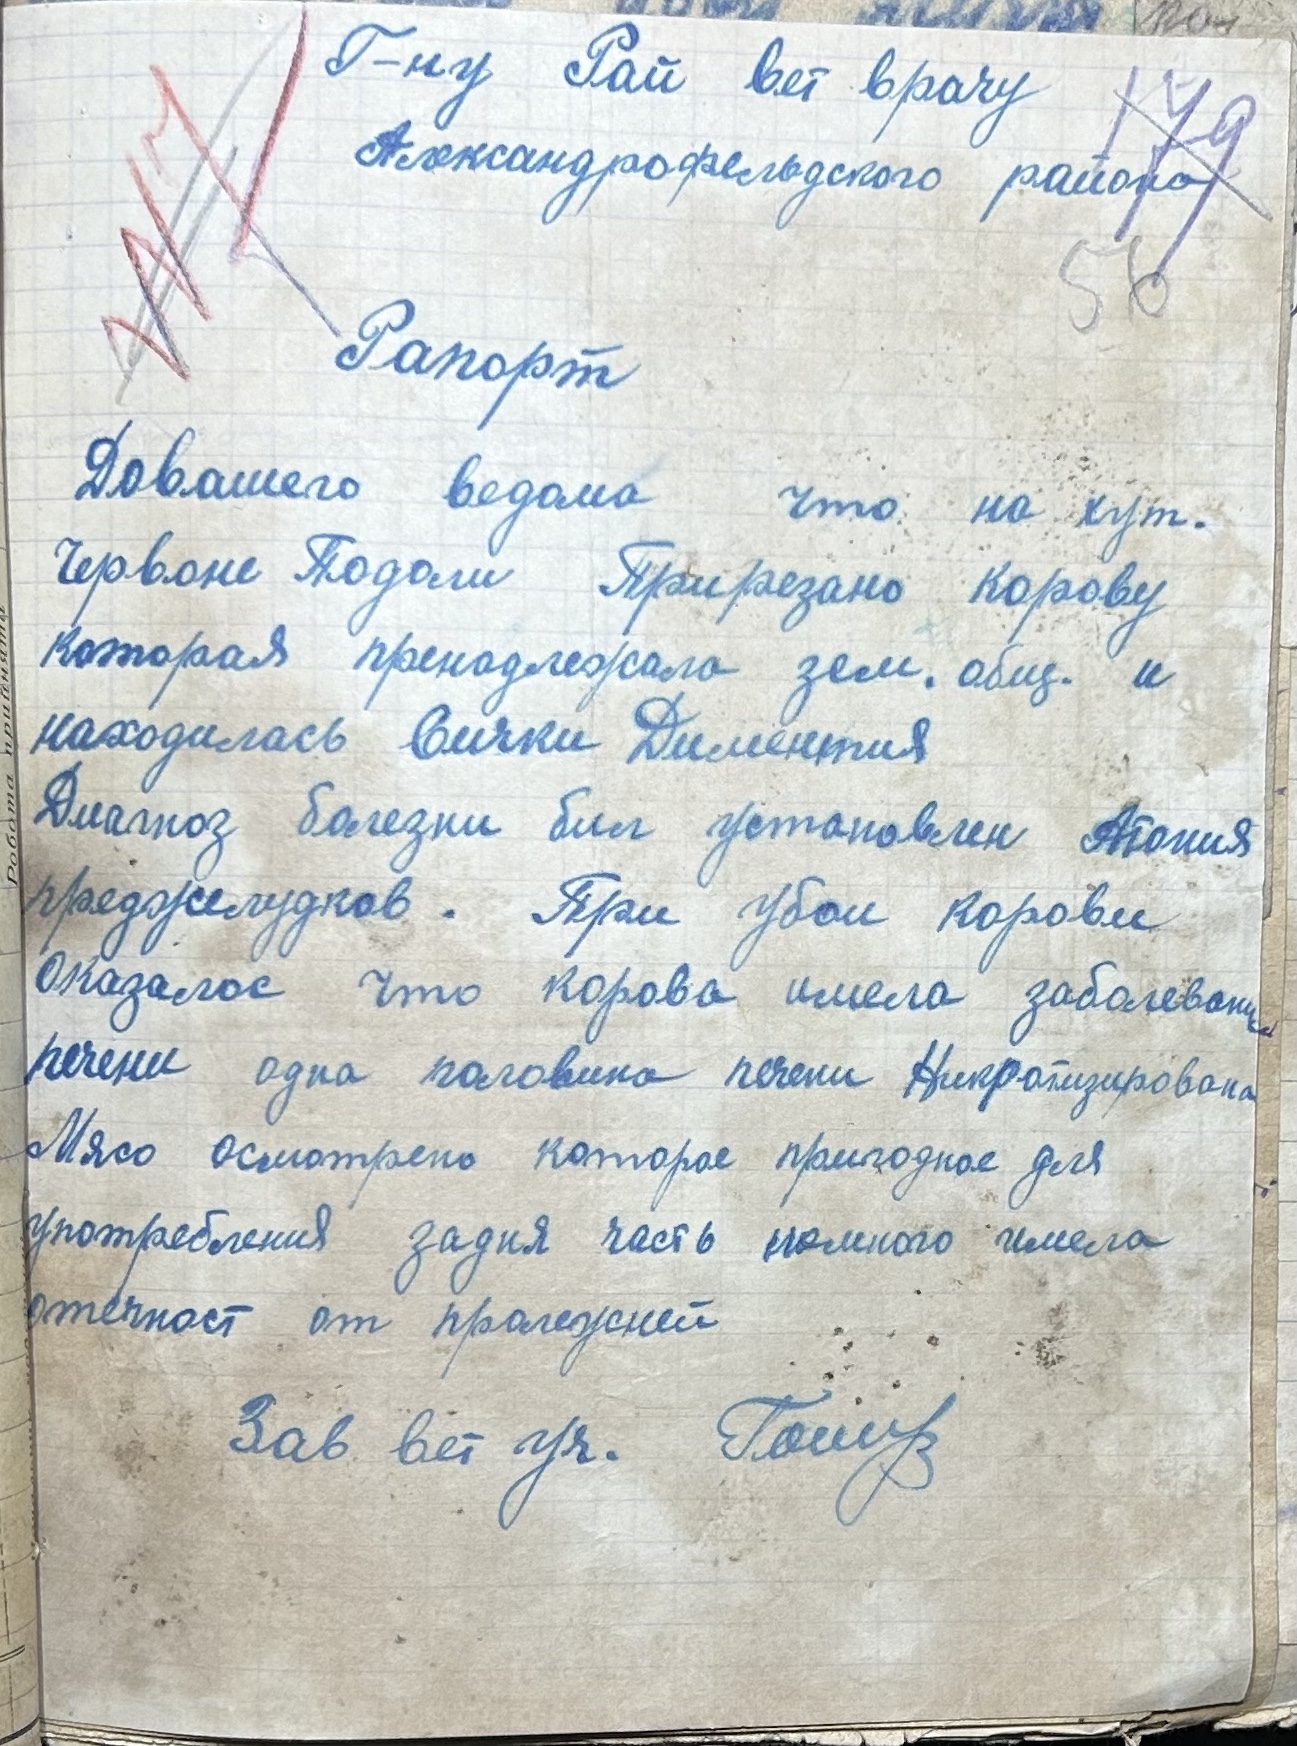 Г-ну Рай вет врачу
179
Александрофельдского района
56
Рапорт
До вашего ведома что на хут.
Червоне Подоли Прирезано корову
которая пренадлежала зем. общ. и
находилась Вички Диментия
Диагноз болезни бил установлен Атония
преджелудков. При убои корови
оказалос что корова имела заболевания
печени одна половина печени Никротизирована
Мясо осмотрено которое пригодное для
употребления задня часть немного имела
отечност от пролежней
Зав вет уч.